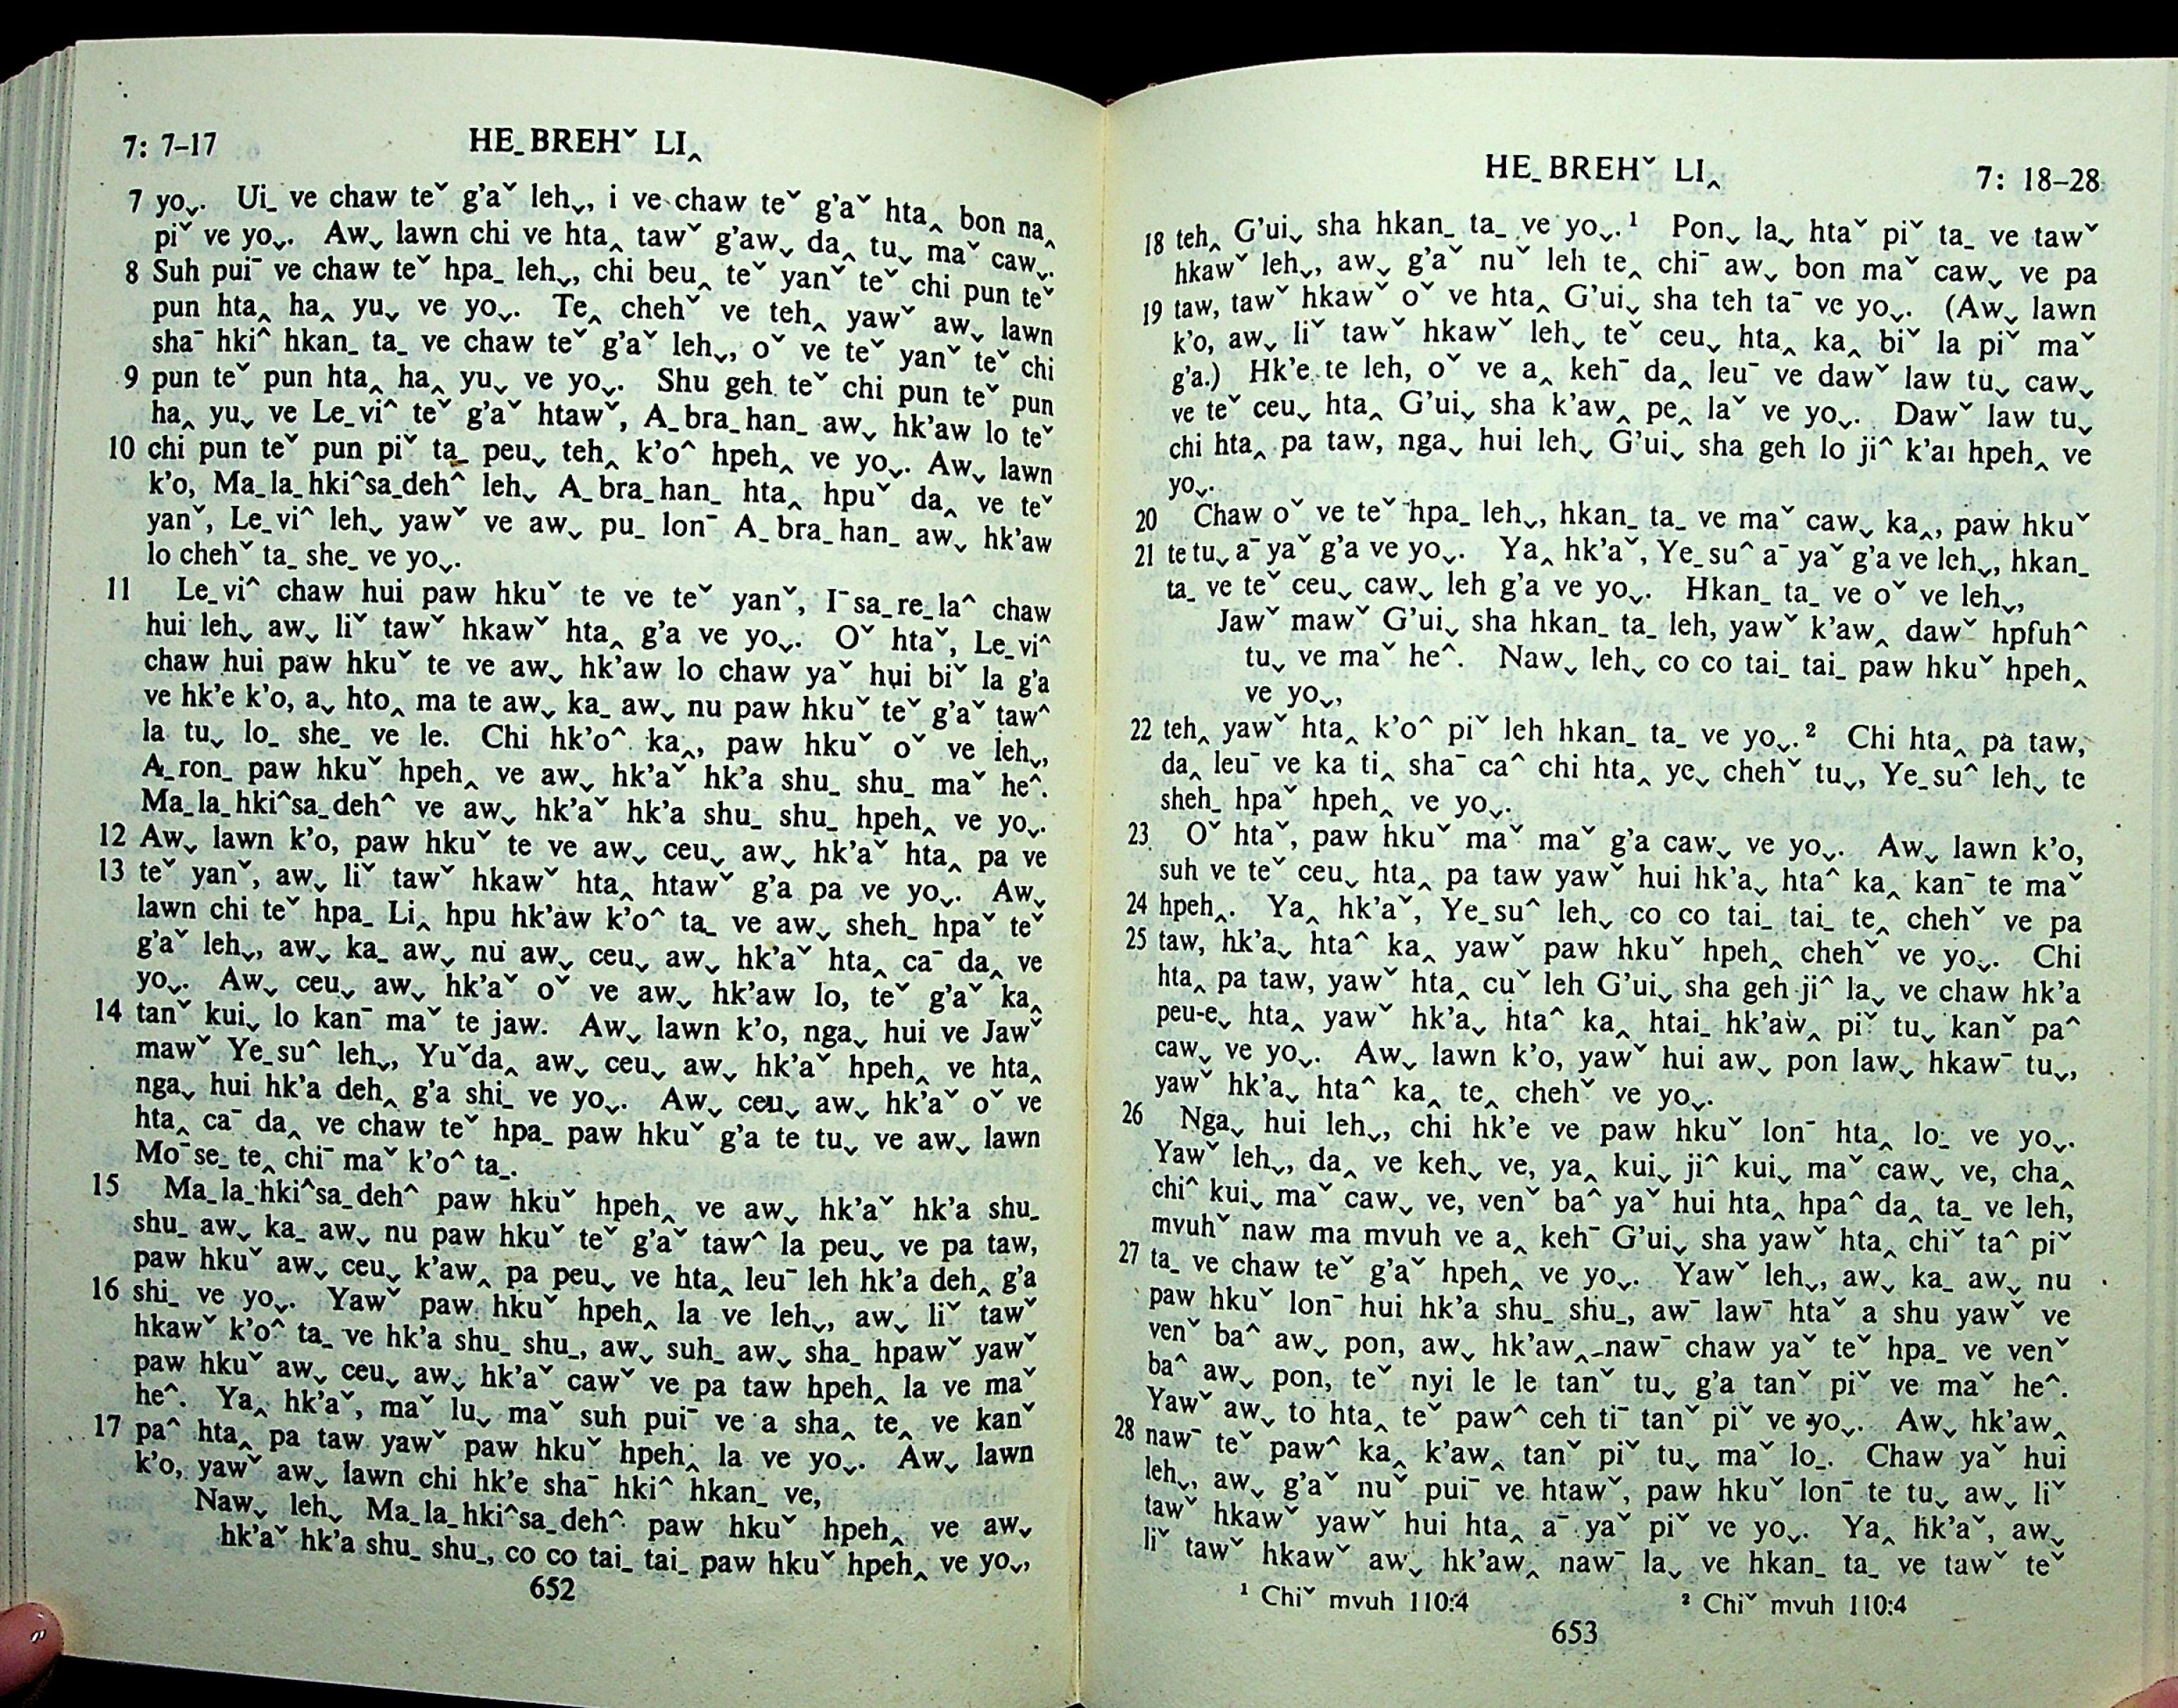 7: 7–17
HE_ BREHˇ LI‸
7 yoˬ. Ui_ ve chaw teˇ g’aˇ lehˬ, i ve chaw teˇ g’aˇ hta‸ bon na‸
piˇ ve yoˬ. Awˬ lawn chi ve hta‸ tawˇ g’awˬ da‸ tuˬ maˇ cawˬ.
8 Suh puiˉ ve chaw teˇ hpa_ lehˬ, chi beu‸ teˇ yanˇ teˇ chi pun teˇ
pun hta‸ ha‸ yuˬ ve yoˬ. Te‸ chehˇ ve teh‸ yawˇ awˬ lawn
shaˉ hki^ hkan_ ta_ ve chaw teˇ g’aˇ lehˬ, oˇ ve teˇ yanˇ teˇ chi
9 pun teˇ pun hta‸ ha‸ yuˬ ve yoˬ. Shu geh teˇ chi pun teˇ pun
ha‸ yuˬ ve Le_vi^ teˇ g’aˇ htawˇ, A_bra_han_ awˬ hk’aw lo teˇ
10 chi pun teˇ pun piˇ ta_ peuˬ teh‸ k’o^ hpeh‸ ve yoˬ. Awˬ lawn
k’o, Ma_la_hki^sa_deh^ lehˬ A_bra_han_ hta‸ hpuˇ da‸ ve teˇ
yanˇ, Le_vi^ lehˬ yawˇ ve awˬ pu_ lonˉ A_bra_han_ awˬ hk’aw
lo chehˇ ta_ she_ ve yoˬ.
11 Le_vi^ chaw hui paw hkuˇ te ve teˇ yanˇ, Iˉsa_re_la^ chaw
hui lehˬ awˬ liˇ tawˇ hkawˇ hta‸ g’a ve yoˬ. Oˇ htaˇ, Le_vi^
chaw hui paw hkuˇ te ve awˬ hk’aw lo chaw yaˇ hui biˇ la g’a
ve hk’e k’o, aˬ hto‸ ma te awˬ ka_ awˬ nu paw hkuˇ teˇ g’aˇ taw^
la tuˬ lo_ she_ ve le. Chi hk’o^ ka‸, paw hkuˇ oˇ ve lehˬ,
A_ron_ paw hkuˇ hpeh‸ ve awˬ hk’aˇ hk’a shu_ shu_ maˇ he^.
Ma_la_hki^sa_deh^ ve awˬ hk’aˇ hk’a shu_ shu_ hpeh‸ ve yoˬ.
12 Awˬ lawn k’o, paw hkuˇ te ve awˬ ceuˬ awˬ hk’aˇ hta‸ pa ve
13 teˇ yanˇ, awˬ liˇ tawˇ hkawˇ hta‸ htawˇ g’a pa ve yoˬ. Awˬ
lawn chi teˇ hpa_ Li‸ hpu hk’aw k’o^ ta_ ve awˬ sheh_ hpaˇ teˇ
g’aˇ lehˬ, awˬ ka_ awˬ nu awˬ ceuˬ awˬ hk’aˇ hta‸ caˉ da‸ ve
yoˬ. Awˬ ceuˬ awˬ hk’aˇ oˇ ve awˬ hk’aw lo, teˇ g’aˇ ka‸
14 tanˇ kuiˬ lo kanˉ maˇ te jaw. Awˬ lawn k’o, ngaˬ hui ve Jawˇ
mawˇ Ye_su^ lehˬ, Yuˇda‸ awˬ ceuˬ awˬ hk’aˇ hpeh‸ ve hta‸
ngaˬ hui hk’a deh‸ g’a shi_ ve yoˬ. Awˬ ceuˬ awˬ hk’aˇ oˇ ve
hta‸ caˉ da‸ ve chaw teˇ hpa_ paw hkuˇ g’a te tuˬ ve awˬ lawn
Moˉse_ te‸ chiˉ maˇ k’o^ ta_.
15 Ma_la_hki^sa_deh^ paw hkuˇ hpeh‸ ve awˬ hk’aˇ hk’a shu_
shu_ awˬ ka_ awˬ nu paw hkuˇ teˇ g’aˇ taw^ la peuˬ ve pa taw,
paw hkuˇ awˬ ceuˬ k’aw‸ pa peuˬ ve hta‸ leuˉ leh hk’a deh‸ g’a
16 shi_ ve yoˬ. Yawˇ paw hkuˇ hpeh‸ la ve lehˬ, awˬ liˇ tawˇ
hkawˇ k’o^ ta_ ve hk’a shu_ shu_, awˬ suh_ awˬ sha_ hpawˇ yawˇ
paw hkuˇ awˬ ceuˬ awˬ hk’aˇ cawˇ ve pa taw hpeh‸ la ve maˇ
he^. Ya‸ hk’aˇ, maˇ luˬ maˇ suh puiˉ ve a sha‸ te‸ ve kanˇ
17 pa^ hta‸ pa taw yawˇ paw hkuˇ hpeh‸ la ve yoˬ. Awˬ lawn
k’o, yawˇ awˬ lawn chi hk’e shaˉ hki^ hkan_ ve,
Nawˬ lehˬ Ma_la_hki^sa_deh^ paw hkuˇ hpeh‸ ve awˬ
hk’aˇ hk’a shu_ shu_, co co tai_ tai_ paw hkuˇ hpeh‸ ve yoˬ,
652
HE_ BREHˇ LI‸
7: 18–28
18 teh‸ G’uiˬ sha hkan_ ta_ ve yoˬ.¹ Ponˬ laˬ htaˇ piˇ ta_ ve tawˇ
hkawˇ lehˬ, awˬ g’aˇ nuˇ leh te‸ chiˉ awˬ bon maˇ cawˬ ve pa
19 taw, tawˇ hkawˇ oˇ ve hta‸ G’uiˬ sha teh taˉ ve yoˬ. (Awˬ lawn
k’o, awˬ liˇ tawˇ hkawˇ lehˬ teˇ ceuˬ hta‸ ka‸ biˇ la piˇ maˇ
g’a.) Hk’e te leh, oˇ ve a‸ kehˉ da‸ leuˉ ve dawˇ law tuˬ cawˬ
ve teˇ ceuˬ hta‸ G’uiˬ sha k’aw‸ pe‸ laˇ ve yoˬ. Dawˇ law tuˬ
chi hta‸ pa taw, ngaˬ hui lehˬ G’uiˬ sha geh lo ji^ k’ai hpeh‸ ve
yoˬ.
20 Chaw oˇ ve teˇ hpa_ lehˬ, hkan_ ta_ ve maˇ cawˬ ka‸, paw hkuˇ
21 te tuˬ aˉ yaˇ g’a ve yoˬ. Ya‸ hk’aˇ, Ye_su^ aˉ yaˇ g’a ve lehˬ, hkan_
ta_ ve teˇ ceuˬ cawˬ leh g’a ve yoˬ. Hkan_ ta_ ve oˇ ve lehˬ,
Jawˇ mawˇ G’uiˬ sha hkan_ ta_ leh, yawˇ k’aw‸ dawˇ hpfuh^
tuˬ ve maˇ he^. Nawˬ lehˬ co co tai_ tai_ paw hkuˇ hpeh‸
ve yoˬ,
22 teh‸ yawˇ hta‸ k’o^ piˇ leh hkan_ ta_ ve yoˬ.² Chi hta‸ pa taw,
da‸ leuˉ ve ka ti‸ shaˉ ca^ chi hta‸ yeˬ chehˇ tuˬ, Ye_su^ lehˬ te
sheh_ hpaˇ hpeh‸ ve yoˬ.
23 Oˇ htaˇ, paw hkuˇ maˇ maˇ g’a cawˬ ve yoˬ. Awˬ lawn k’o,
suh ve teˇ ceuˬ hta‸ pa taw yawˇ hui hk’aˬ hta^ ka‸ kanˉ te maˇ
24 hpeh‸. Ya‸ hk’aˇ, Ye_su^ lehˬ co co tai_ tai_ te‸ chehˇ ve pa
25 taw, hk’aˬ hta^ ka‸ yawˇ paw hkuˇ hpeh‸ chehˇ ve yoˬ. Chi
hta‸ pa taw, yawˇ hta‸ cuˇ leh G’uiˬ sha geh ji^ laˬ ve chaw hk’a
peu-eˬ hta‸ yawˇ hk’aˬ hta^ ka‸ htai_ hk’aw‸ piˇ tuˬ kanˇ pa^
cawˬ ve yoˬ. Awˬ lawn k’o, yawˇ hui awˬ pon lawˬ hkawˉ tuˬ,
yawˇ hk’aˬ hta^ ka‸ te‸ chehˇ ve yoˬ.
26 Ngaˬ hui lehˬ, chi hk’e ve paw hkuˇ lonˉ hta‸ lo_ ve yoˬ.
Yawˇ lehˬ, da‸ ve kehˬ ve, ya‸ kuiˬ ji^ kuiˬ maˇ cawˬ ve, cha‸
chi^ kuiˬ maˇ cawˬ ve, venˇ ba^ yaˇ hui hta‸ hpa^ da‸ ta_ ve leh,
mvuhˇ naw ma mvuh ve a‸ kehˉ G’uiˬ sha yawˇ hta‸ chiˇ ta^ piˇ
27 ta_ ve chaw teˇ g’aˇ hpeh‸ ve yoˬ. Yawˇ lehˬ, awˬ ka_ awˬ nu
paw hkuˇ lonˉ hui hk’a shu_ shu_, awˉ lawˉ htaˇ a shu yawˇ ve
venˇ ba^ awˬ pon, awˬ hk’aw‸-nawˉ chaw yaˇ teˇ hpa_ ve venˇ
ba^ awˬ pon, teˇ nyi le le tanˇ tuˬ g’a tanˇ piˇ ve maˇ he^.
Yawˇ awˬ to hta‸ teˇ paw^ ceh tiˉ tanˇ piˇ ve yoˬ. Awˬ hk’aw‸
28 nawˉ teˇ paw^ ka‸ k’aw‸ tanˇ piˇ tuˬ maˇ lo_. Chaw yaˇ hui
lehˬ, awˬ g’aˇ nuˇ puiˉ ve htawˇ, paw hkuˇ lonˉ te tuˬ awˬ liˇ
tawˇ hkawˇ yawˇ hui hta‸ aˉ yaˇ piˇ ve yoˬ. Ya‸ hk’aˇ, awˬ
liˇ tawˇ hkawˇ awˬ hk’aw‸ nawˉ laˬ ve hkan_ ta_ ve tawˇ teˇ
¹ Chiˇ mvuh 110:4
² Chiˇ mvuh 110:4
653